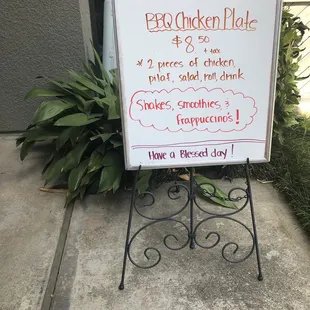 BBQ Chicken Plate
$8.50 + tax
* 2 pieces of chicken
pilaf, salad, roll, drink
Shakes, smoothies, &
Frappuccino's!
Have a Blessed day!